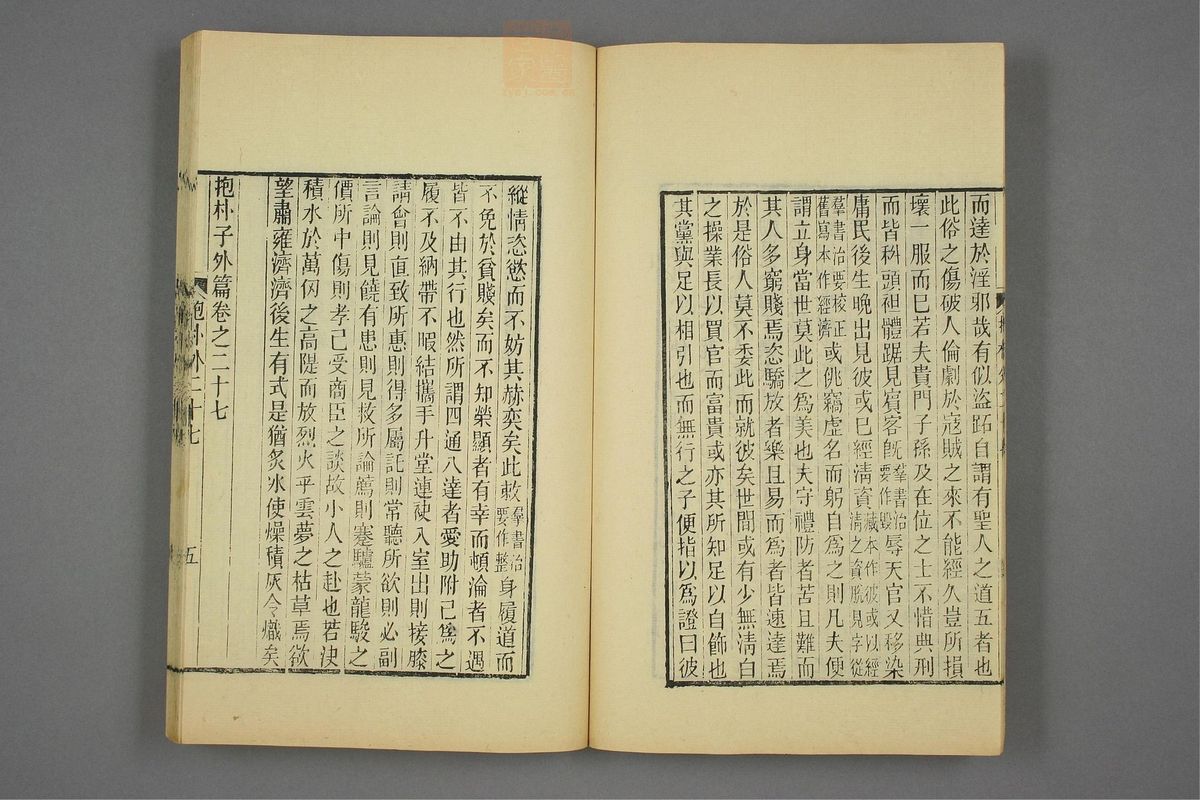 而達於淫邪哉有似盜跖自謂有聖人之道五者也
此俗之傷破人倫劇於寇賊之來不能經久豈所損
壞一服而已若夫貴門子孫及在位之士不惜典刑
而皆科頭袒體踞見賓客旣羣書治要作毀辱天官又移染
庸民後生晚出見彼或已經淸資藏本作彼或以經淸之資脫見字從
羣書治要校正舊寫本作經濟或佻竊虛名而躬自爲之則凡夫便
謂立身當世莫此之爲美也夫守禮防者苦且難而
其人多窮賤焉恣驕放者樂且易而爲者皆速達焉
於是俗人莫不委此而就彼矣世間或有少無淸白
之操業長以買官而富貴或亦其所知足以自飾也
其黨與足以相引也而無行之子便指以爲證曰彼
縱情恣慾而不妨其赫奕矣此敕羣書治要作整身履道而
不免於貧賤矣而不知榮顯者有幸而頓淪者不遇
皆不由其行也然所謂四通八達者愛助附己爲之
履不及納帶不暇結攜手升堂連袂入室出則接膝
請會則直致所惠則得多屬託則常聽所欲則必副
言論則見饒有患則見救所論薦則蹇驢蒙龍駿之
價所中傷則孝己受商臣之談故小人之赴也若決
積水於萬仞之高隄而放烈火乎雲夢之枯草焉欲
望肅雍濟濟後生有式是猶炙冰使燥積灰令熾矣
抱朴子外篇卷之二十七
抱朴外二十七
五